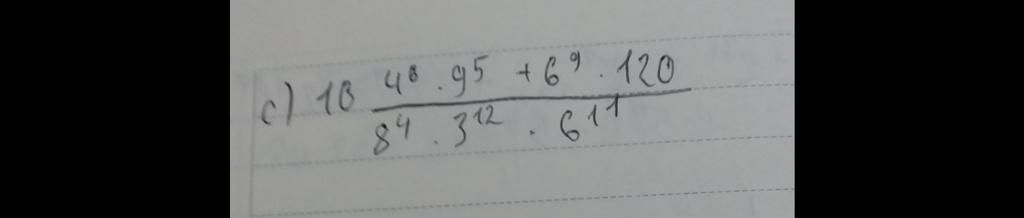 c) 10 4⁶ . 9⁵ + 6⁹ . 120
8⁴ . 3¹² . 6¹¹